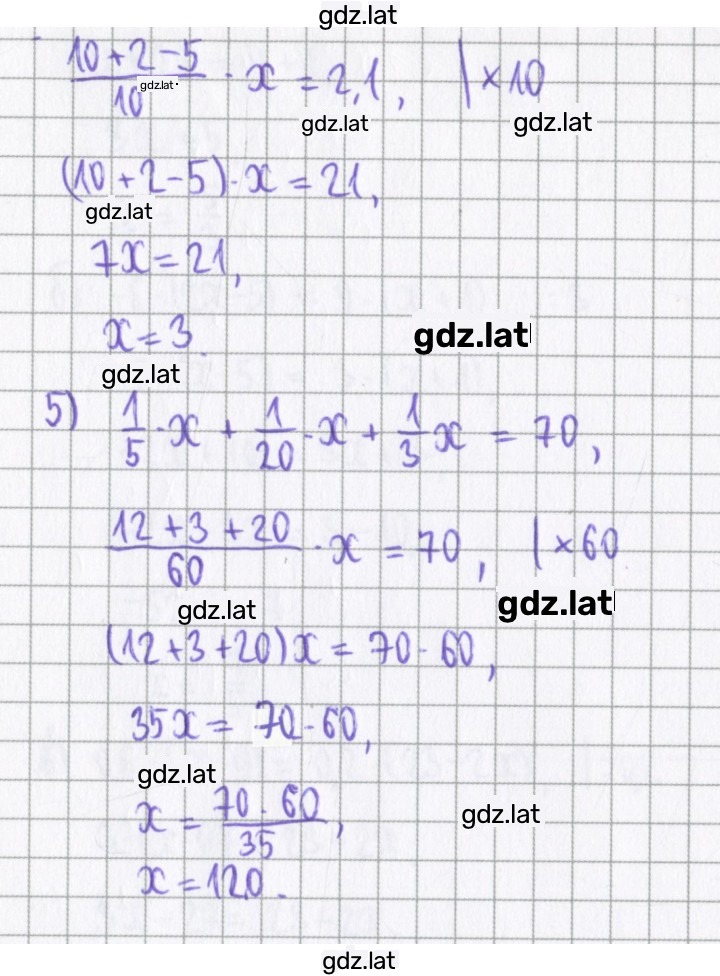 gdz.lat
(10+2-5)/10 · x = 2,1, | ×10
gdz.lat
gdz.lat gdz.lat
(10+2-5)·x = 21,
gdz.lat
7x = 21,
x = 3.
gdz.lat
gdz.lat
5) 1/5 · x + 1/20 · x + 1/3 x = 70,
(12+3+20)/60 · x = 70, | ×60
gdz.lat gdz.lat
(12+3+20)x = 70·60,
35x = 70·60,
gdz.lat
x = (70·60)/35,
gdz.lat
x = 120.
gdz.lat